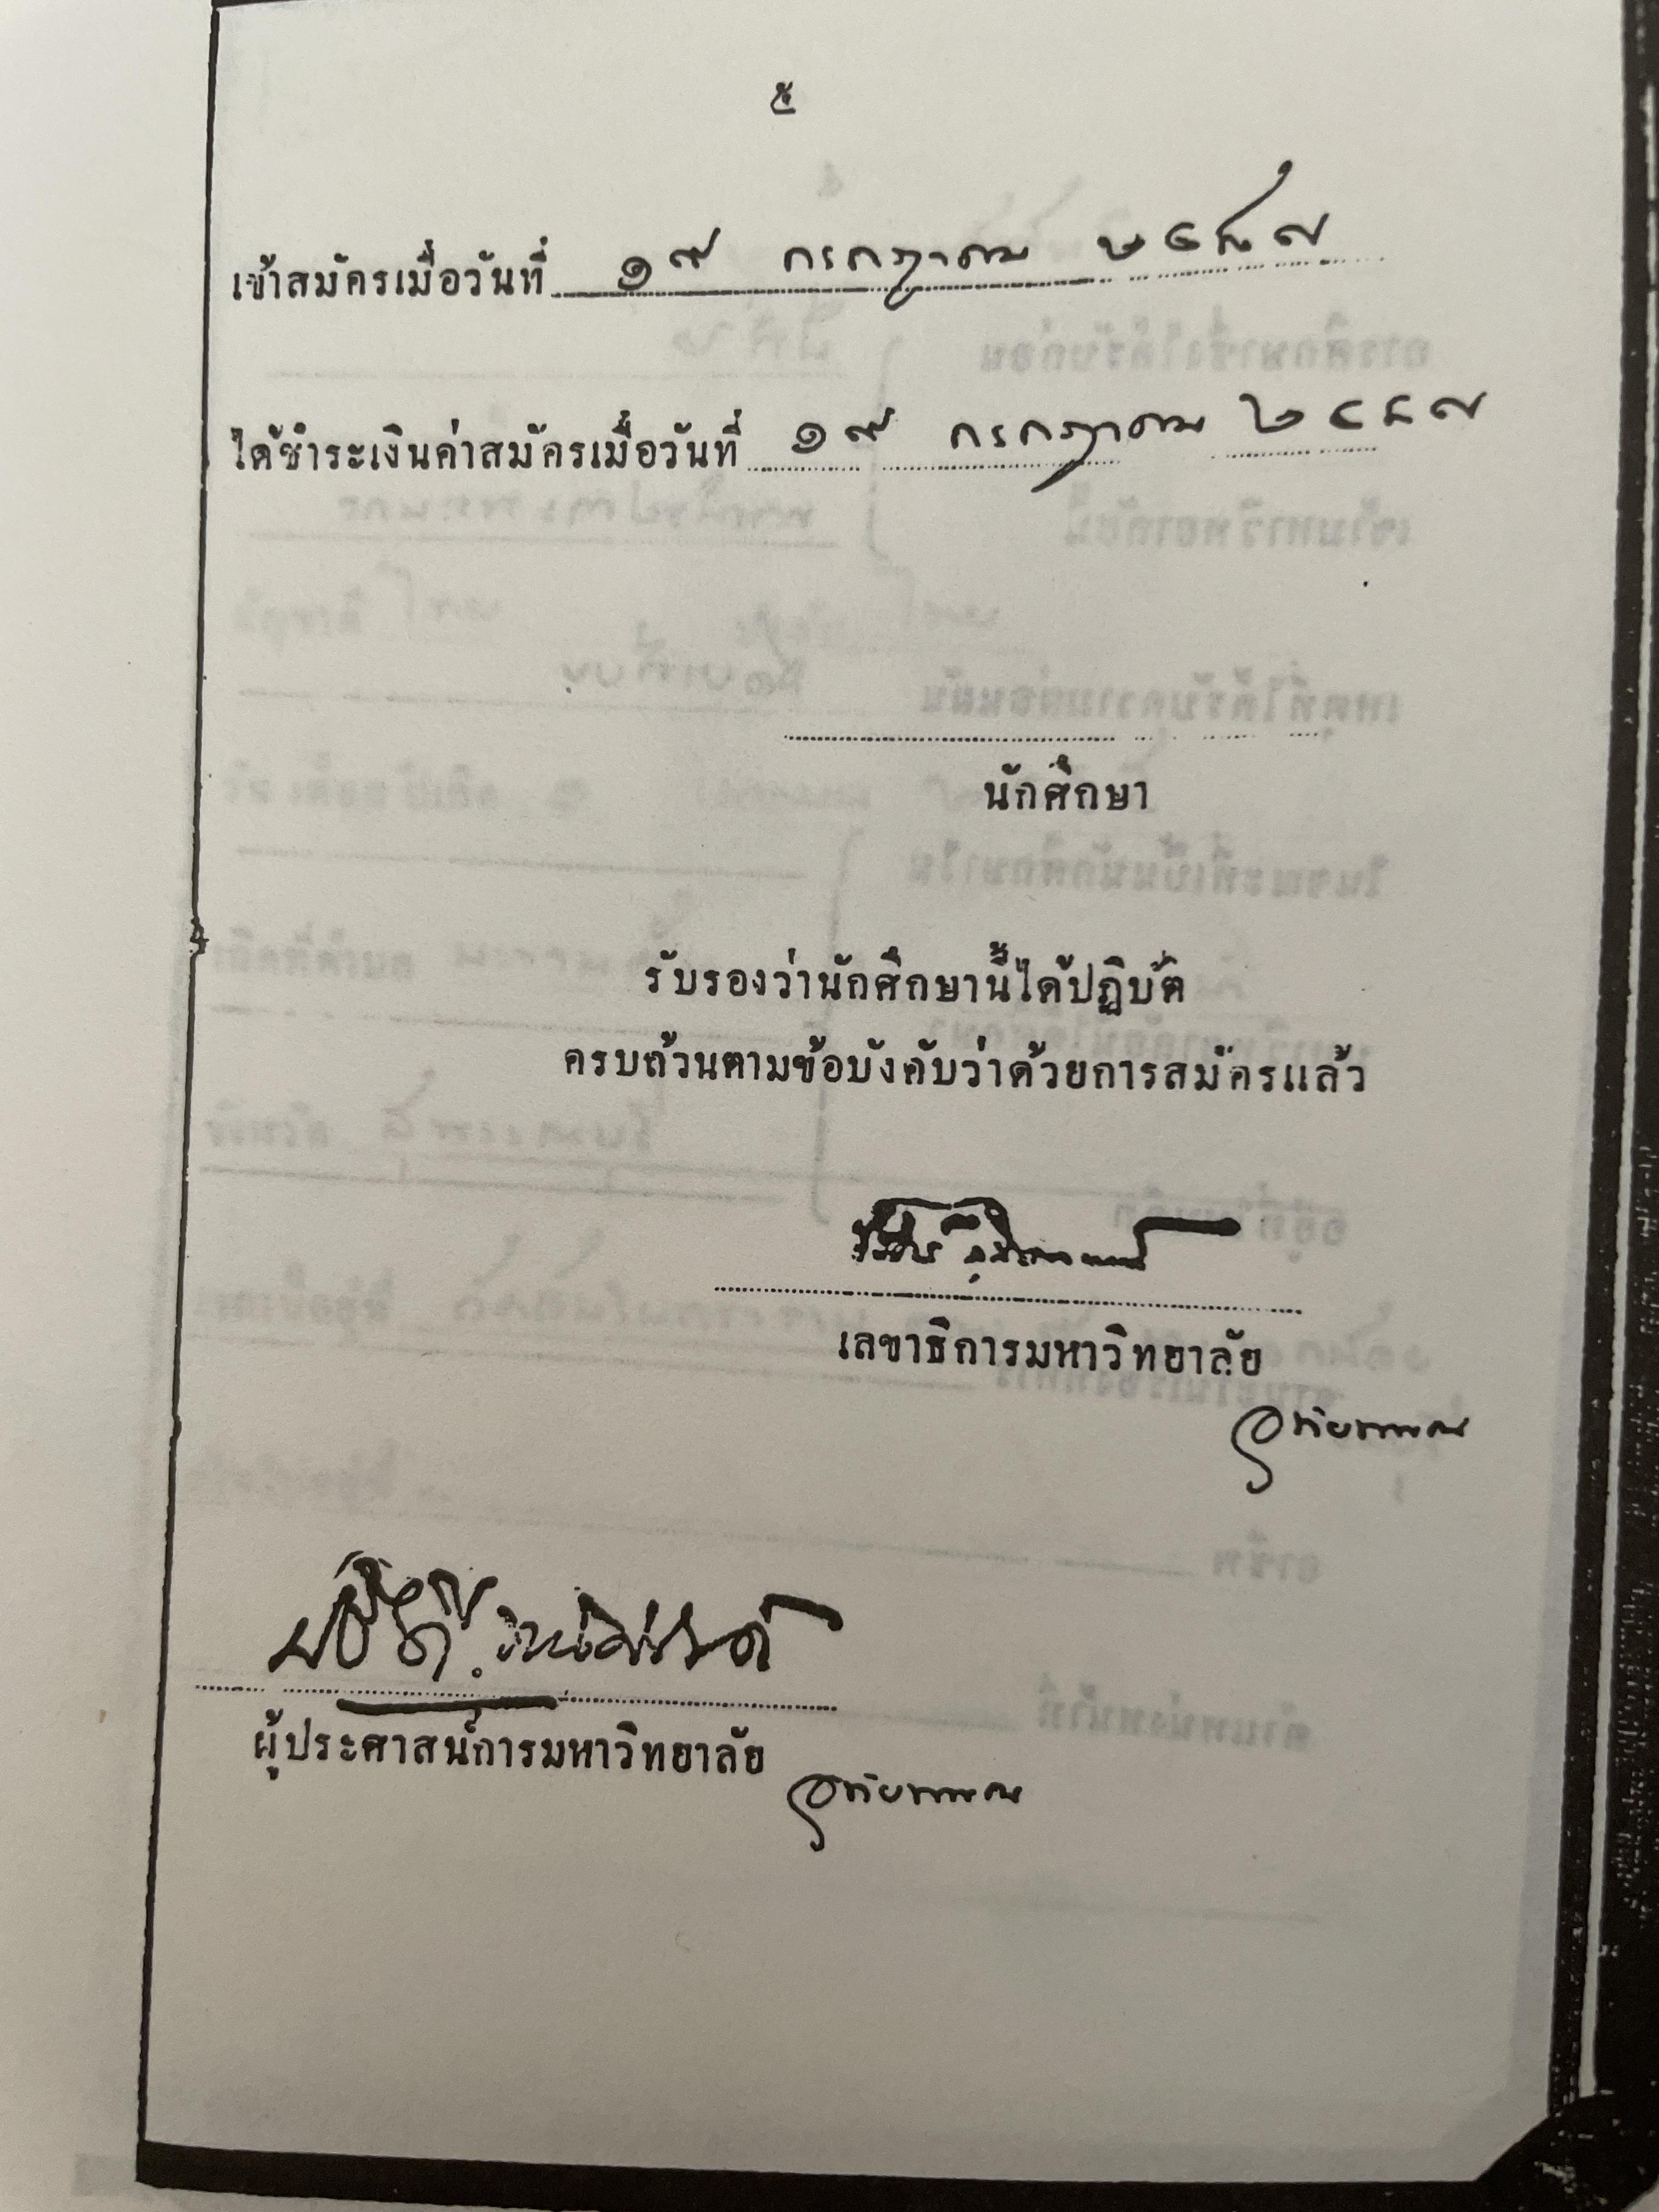 ๕
เข้าสมัครเมื่อวันที่ ๑๙ กรกฎาคม ๒๔๘๗
ได้ชำระเงินค่าสมัครเมื่อวันที่ ๑๙ กรกฎาคม ๒๔๘๗
นักศึกษา
รับรองว่านักศึกษานี้ได้ปฏิบัติ
ครบถ้วนตามข้อบังคับว่าด้วยการสมัครแล้ว
เลขาธิการมหาวิทยาลัย
ปรีดี พนมยงค์
ผู้ประศาสน์การมหาวิทยาลัย